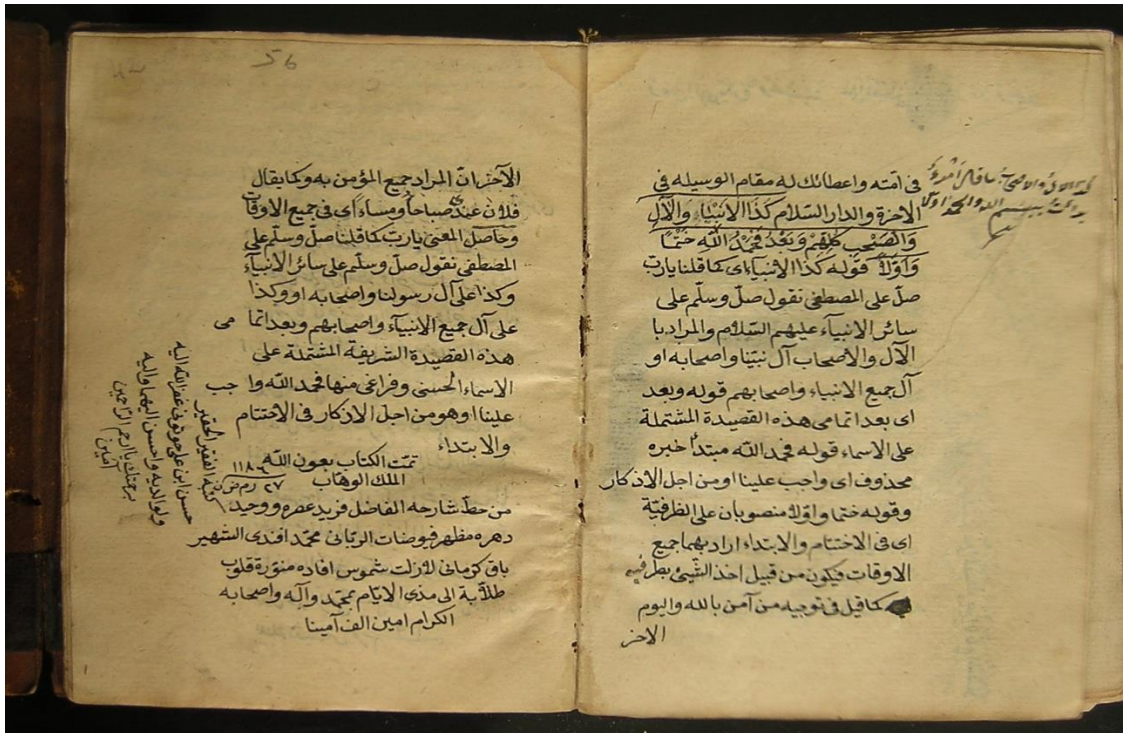 في امّته واعطائك له مقام الوسيله في
الاخرة والدار السّلام كَذَا الاَنْبيَاءِ وَالْآلِ
وَالصَّحْبِ كُلِّهِمْ وَبَعْدُ فَحَمْدُ اللّٰهِ خَتْمًا
وَاَوَّلًا قوله كذا الانبياء اى كما قلنا يا ربّ
صلّ على المصطفى نقول صلّ وسلّم على
سائر الانبياء عليهم السّلام والمراد با
الآل والاصحاب آل نبيّنا واصحابه او
آل جميع الانبياء واصحابهم قوله وبعد
اى بعد اتمامى هذه القصيدة المشتملة
على الاسماء قوله فحمد اللّه مبتدأ خبره
محذوف اى واجب علينا اومن اجل الاذكار
وقوله ختما واوّلا منصوبان على الظرفيّة
اى فى الاختتام والابتداء اراد بهما جميع
الاوقات فيكون من قبيل اخذ الشّيئ بطرفيه
كما قيل فى توجيه من آمن بالله واليوم
الاخر
56
الآخر انّ المراد جميع المؤمن به وكما يقال
فلان عندى صباحاً ومساءً اى فى جميع الاوقات
وحاصل المعنى يا ربّ كما قلنا صلّ وسلّم على
المصطفى نقول صلّ وسلّم على سائر الانبيآء
وكذا على آل رسولنا واصحابه او وكذا
على آل جميع الانبيآء واصحابهم وبعد اتما مى
هذه القصيدة الشريفة المشتملة على
الاسماء الحسنى وفراغى منها فحمد اللّه وا جب
علينا او هو من اجل الاذكار فى الاختتام
والابتداء
تمّت الكتاب بعون اللّه
الملك الوهّاب
من خطّ شارحه الفاضل فريد عصره ووحيد
دهره مظهر فيوضات الربّانى محمّد افندى الشهير
لازالت شموس افاده منوّرة قلوب
طلّابه الى مدى الايّام بمحمّد وآله واصحابه
الكرام امين الف آمينا
كتبه الفقير الحقير
حسن ابن على غفر اللّه اليه
ولوالديه واحسن اليهما واليه
برحمتك يا ارحم الرّاحمين
آمين